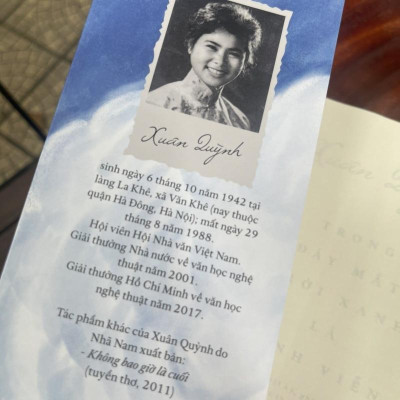 Xuân Quỳnh
sinh ngày 6 tháng 10 năm 1942 tại
làng La Khê, xã Văn Khê (nay thuộc
quận Hà Đông, Hà Nội); mất ngày 29
tháng 8 năm 1988.
Hội viên Hội Nhà văn Việt Nam.
Giải thưởng Nhà nước về văn học nghệ
thuật năm 2001.
Giải thưởng Hồ Chí Minh về văn học
nghệ thuật năm 2017.
Tác phẩm khác của Xuân Quỳnh do
Nhã Nam xuất bản:
- Không bao giờ là cuối
(tuyển thơ, 2011)